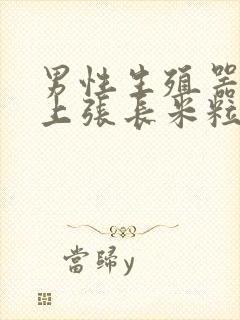 男性生殖器
上張長米粒
當歸y